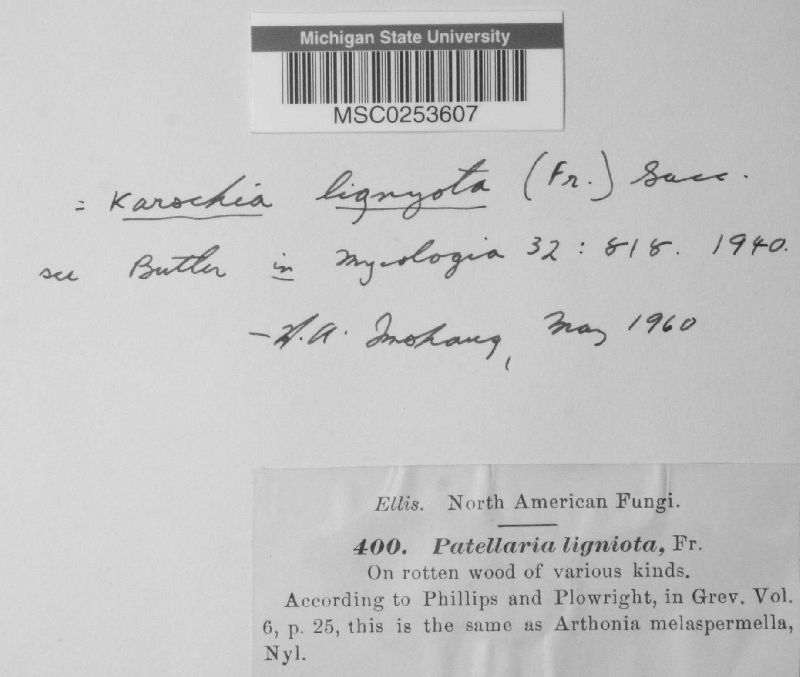 Michigan State University
MSC0253607
= Karschia lignyota (Fr.) Sacc.
see Butler in Mycologia 32 : 818. 1940.
– H.A. Imshaug, May 1960
Ellis. North American Fungi.
400. Patellaria ligniota, Fr.
On rotten wood of various kinds.
According to Phillips and Plowright, in Grev. Vol.
6, p. 25, this is the same as Arthonia melaspermella,
Nyl.